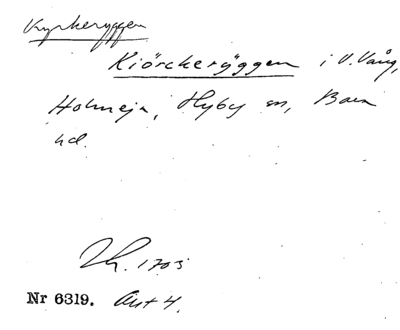 Kyrkeryggen
Kiörckerÿggen i V. Vång,
Holmeja, Hyby sn, Bara
hd.
Lh. 1703
Nr 6319. Akt 4.